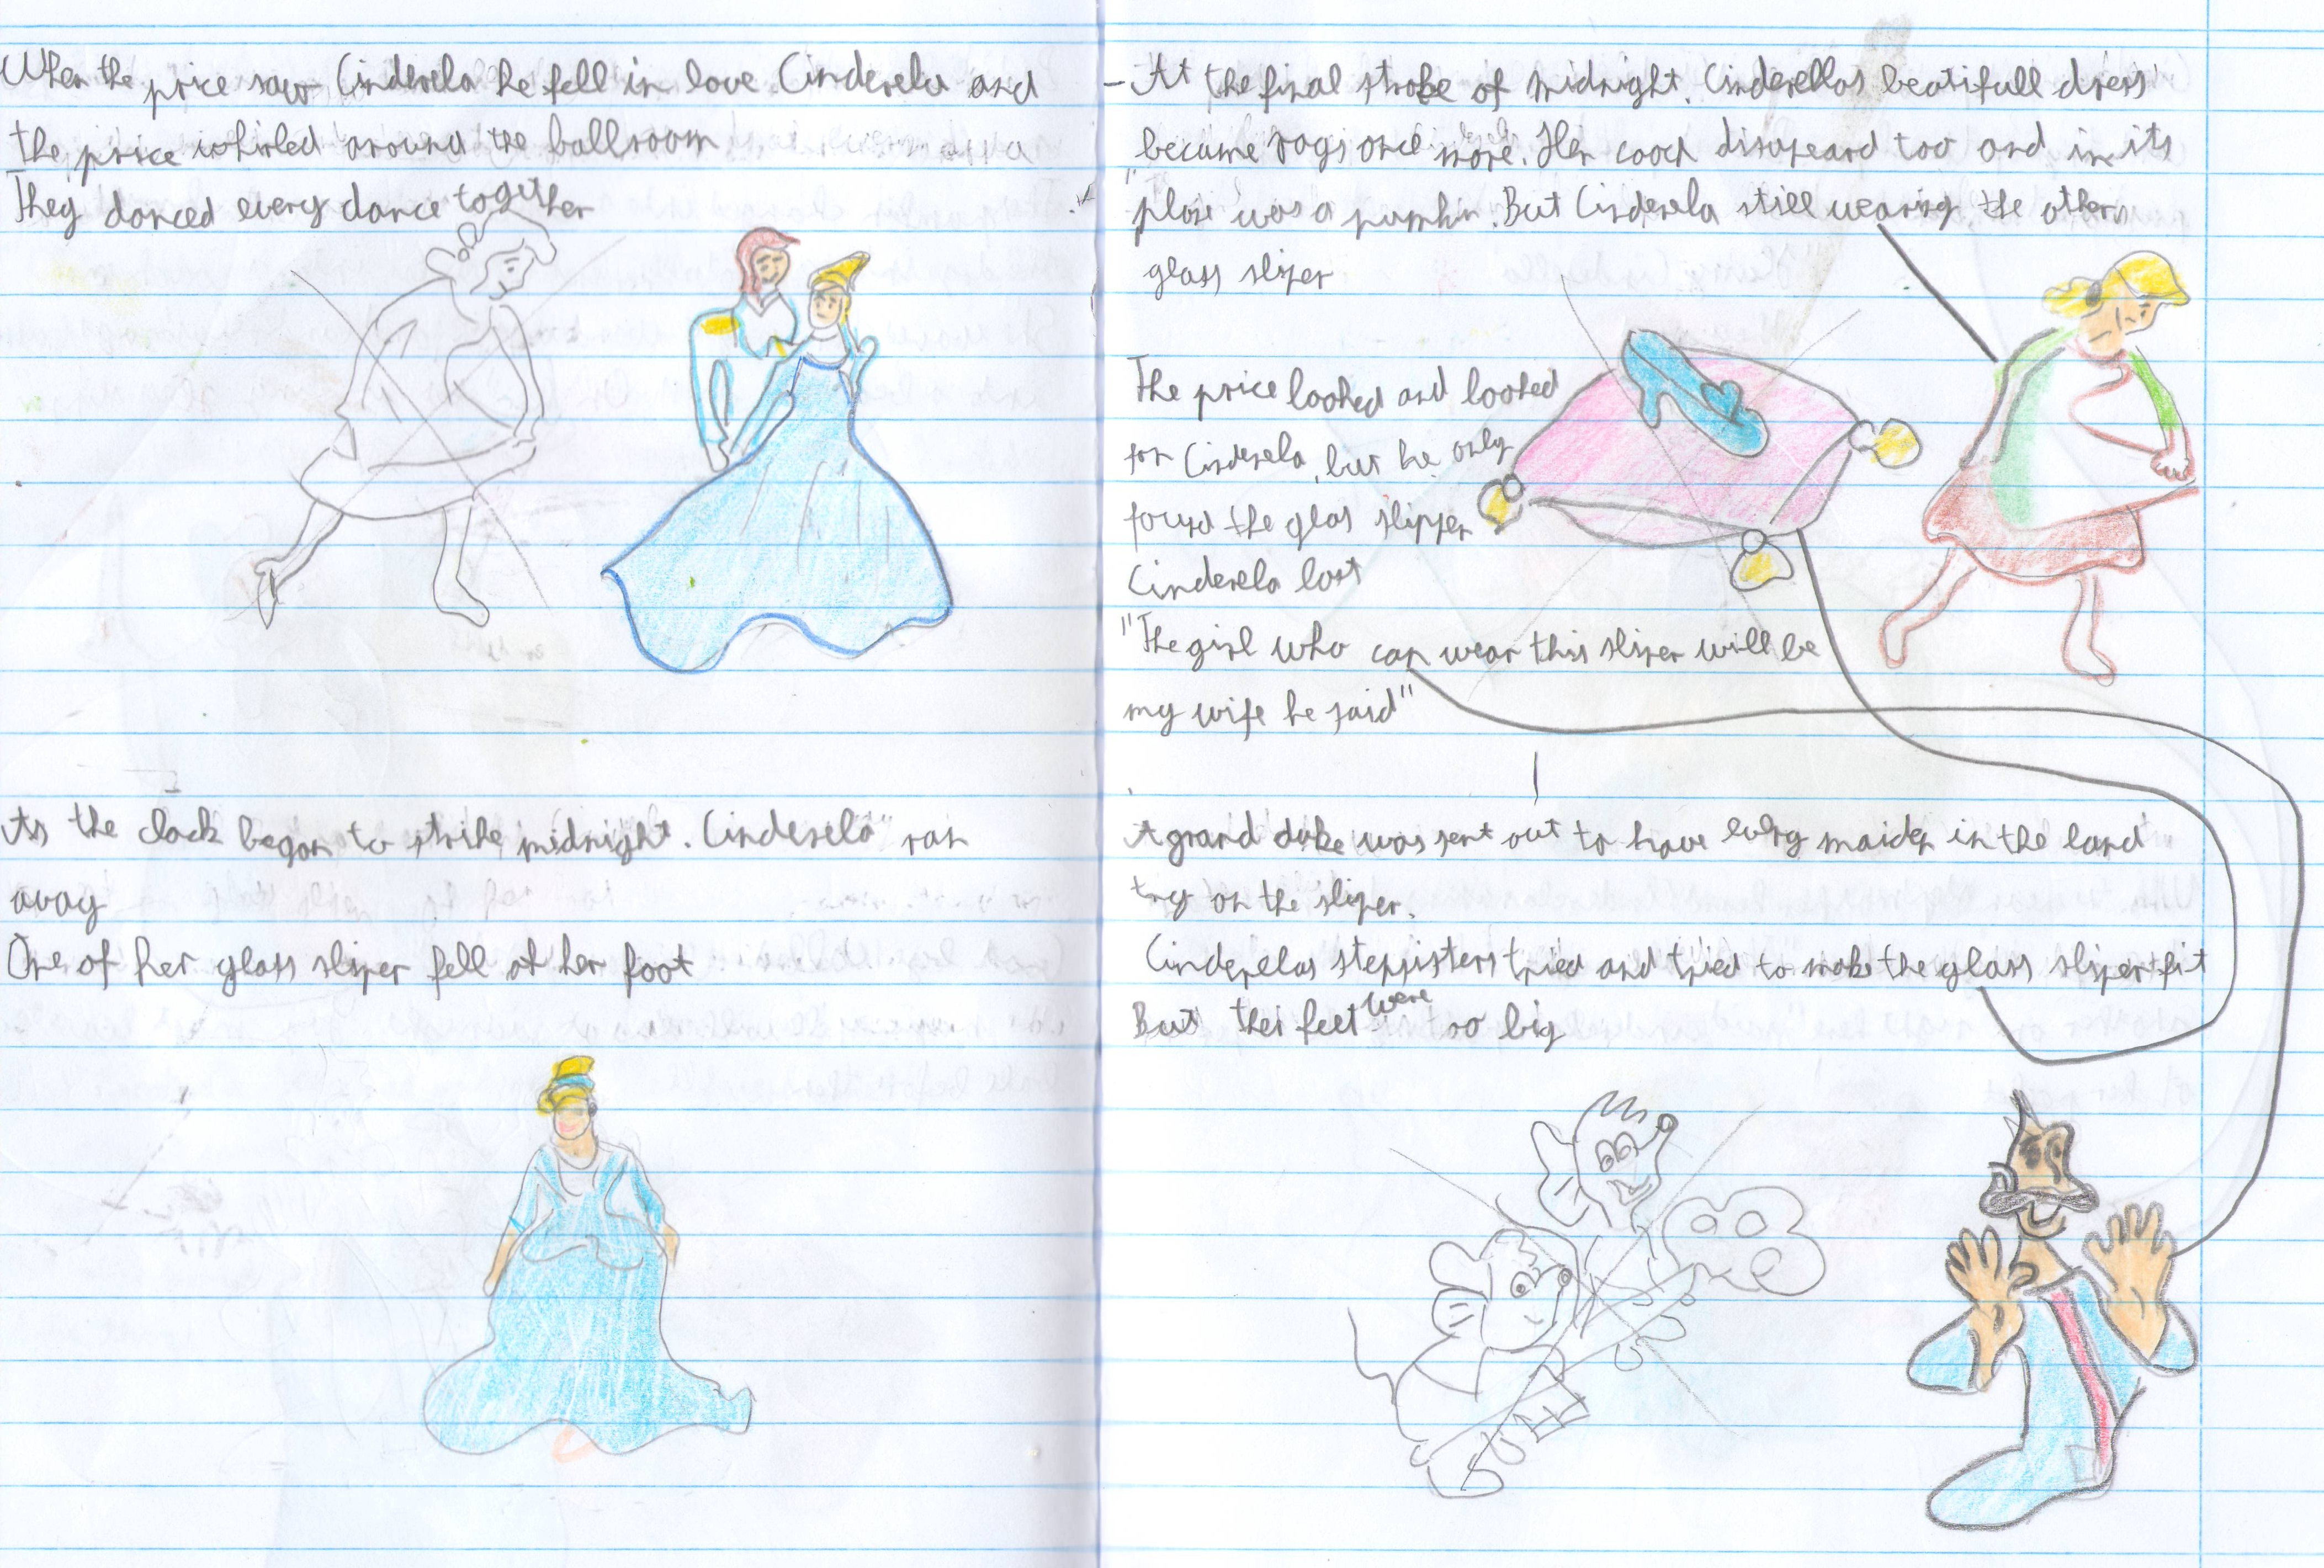 When the price saw Cinderela he fell in love. Cinderela and
the price whirled around the ballroom
They danced every dance together
As the clock began to strike midnight. Cinderela" ran
away
One of her glass sliper fell of her foot
- At the final stroke of midnight. Cinderellas beatifull dress
became rags once more. Her coach disapeard too and in its
place was a pumkin. But Cinderela still wearing the other
glass sliper
The price looked and looked
for Cinderela, but he only
found the glas slipper
Cinderela lost
"The girl who can wear this sliper will be
my wife he said"
A grand duke was sent out to have every maiden in the land
try on the sliper.
Cinderelas stepsisters tried and tried to make the glass sliper fit
But thei feet were too big